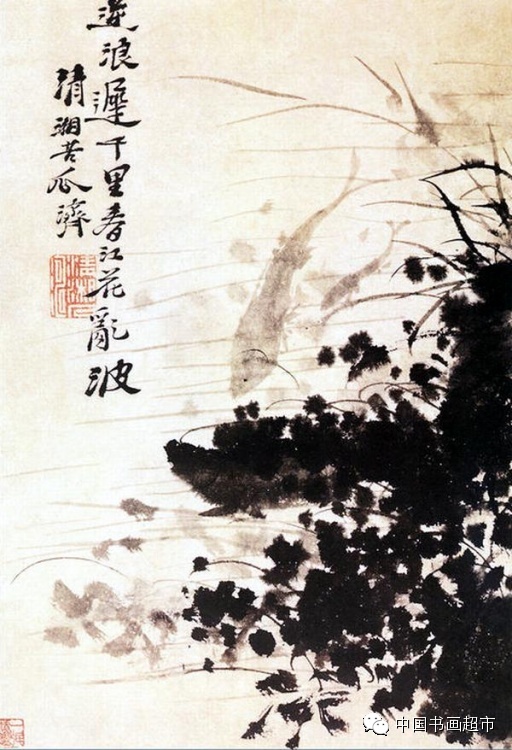 逆浪遲千里春江花亂波
清湘苦瓜濟
中国书画超市